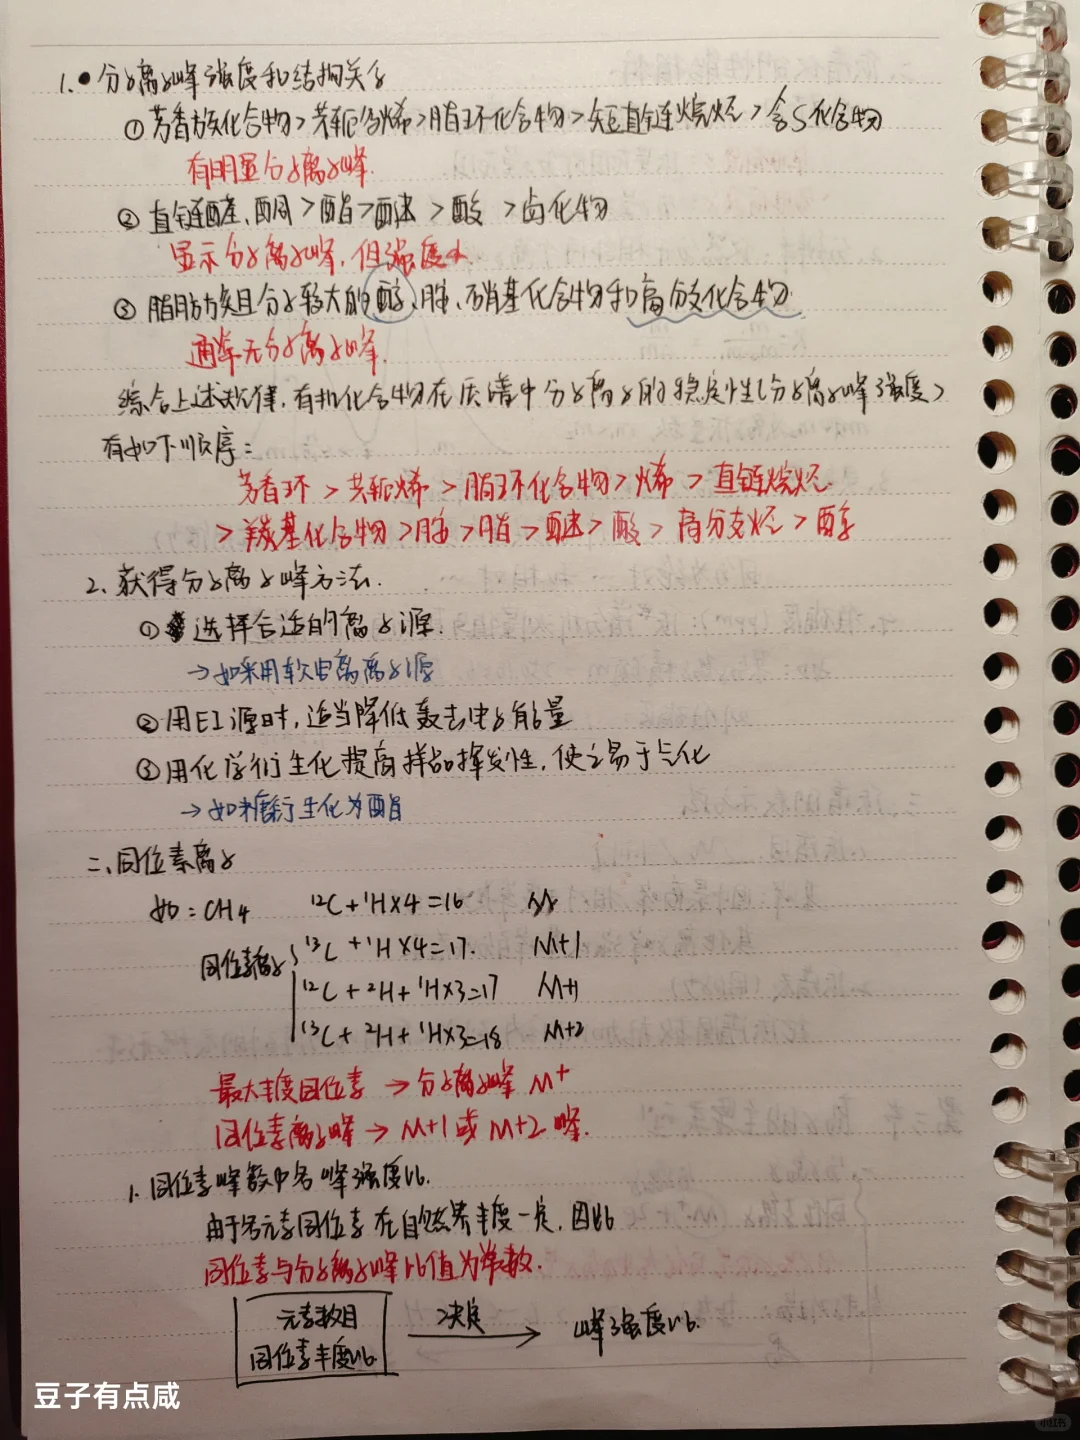 1. 分子离子峰强度和结构关系
① 芳香族化合物>共轭多烯>脂环化合物>短直链烷烃>含S化合物
有明显分子离子峰.
② 直链醛、酮>酯>醚>酸>卤化物
显示分子离子峰,但强度小
③ 脂肪族且分子较大的醇、胺、硝基化合物和高分支化合物.
通常无分子离子峰.
综合上述规律,有机化合物在质谱中分子离子的稳定性(分子离子峰强度)
有如下顺序:
芳香环>共轭烯>脂环化合物>烯>直链烷烃
>羰基化合物>胺>脂>醚>酸>高分支烃>醇
2. 获得分子离子峰方法.
① 选择合适的离子源.
→如采用软电离离子源
② 用EI源时,适当降低轰击电子能量
③ 用化学衍生化提高样品挥发性,使之易于气化
→如糖衍生化为酯
二、同位素离子
如:CH4 ¹²C+¹H×4=16 M
同位素离子 ¹³C+¹H×4=17. M+1
¹²C+²H+¹H×3=17 M+1
¹³C+²H+¹H×3=18 M+2
最大丰度同位素→分子离子峰 M⁺
同位素离子峰→M+1或M+2峰.
1. 同位素峰簇中各峰强度比.
由于各元素同位素在自然界丰度一定,因此
同位素与分子离子峰比值为常数.
元素数目
同位素丰度比 决定 峰强度比.
豆子有点咸